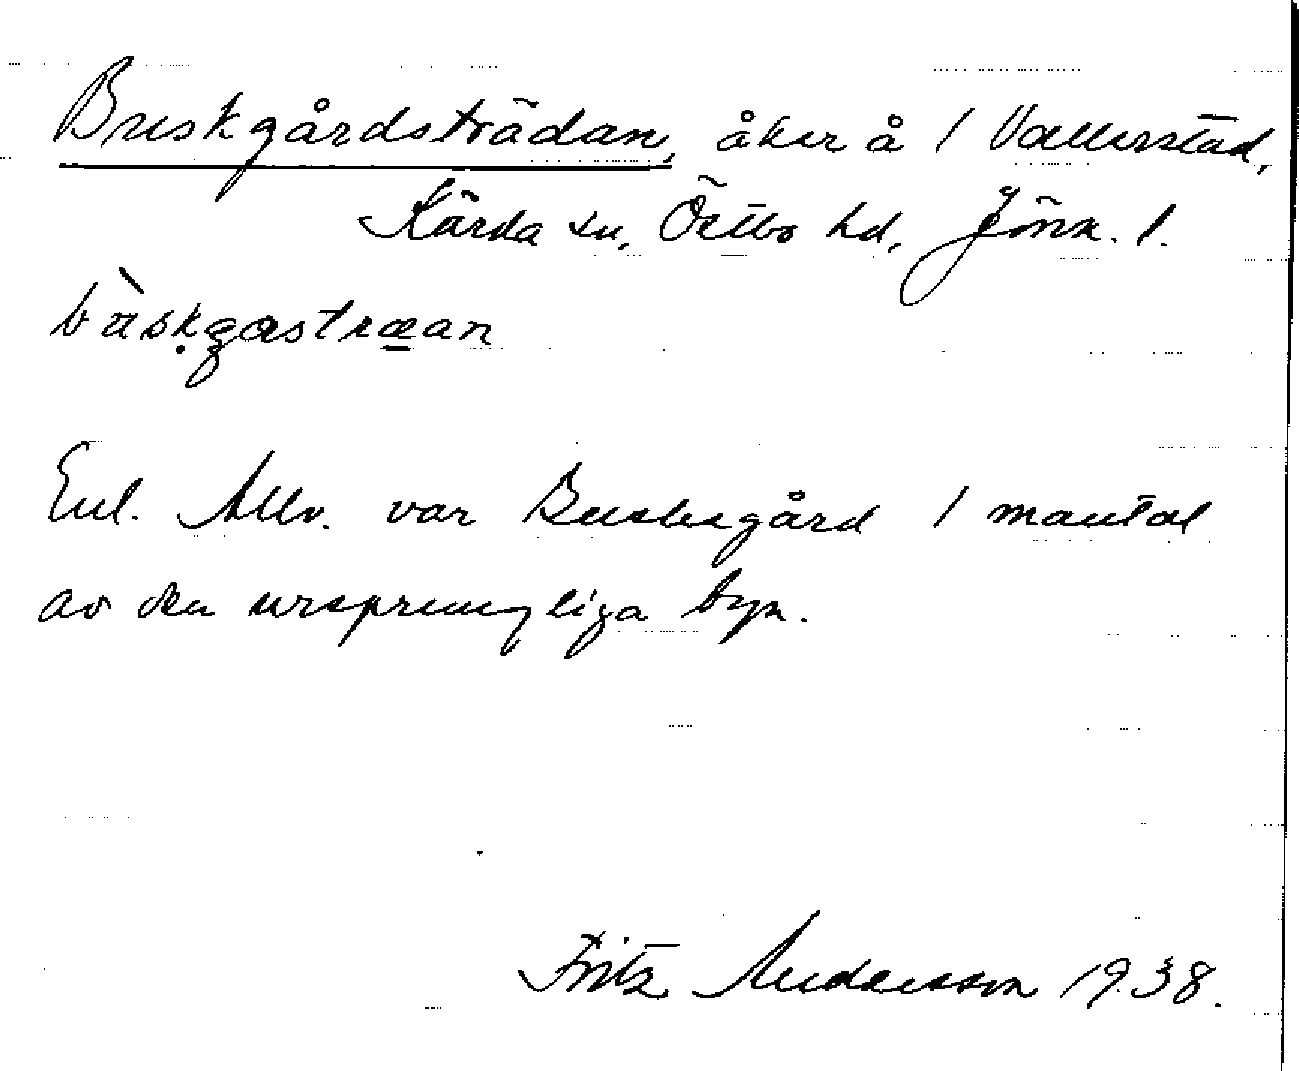 Buskgårdsträdan, åker å 1 Vallerstad,
Kärda sn, Östbo hd, Jönk. l.
bùskgastræan
Enl. Allv. var Buskegård 1 mantal
av den ursprungliga byn.
Fritz Andersson 1938.